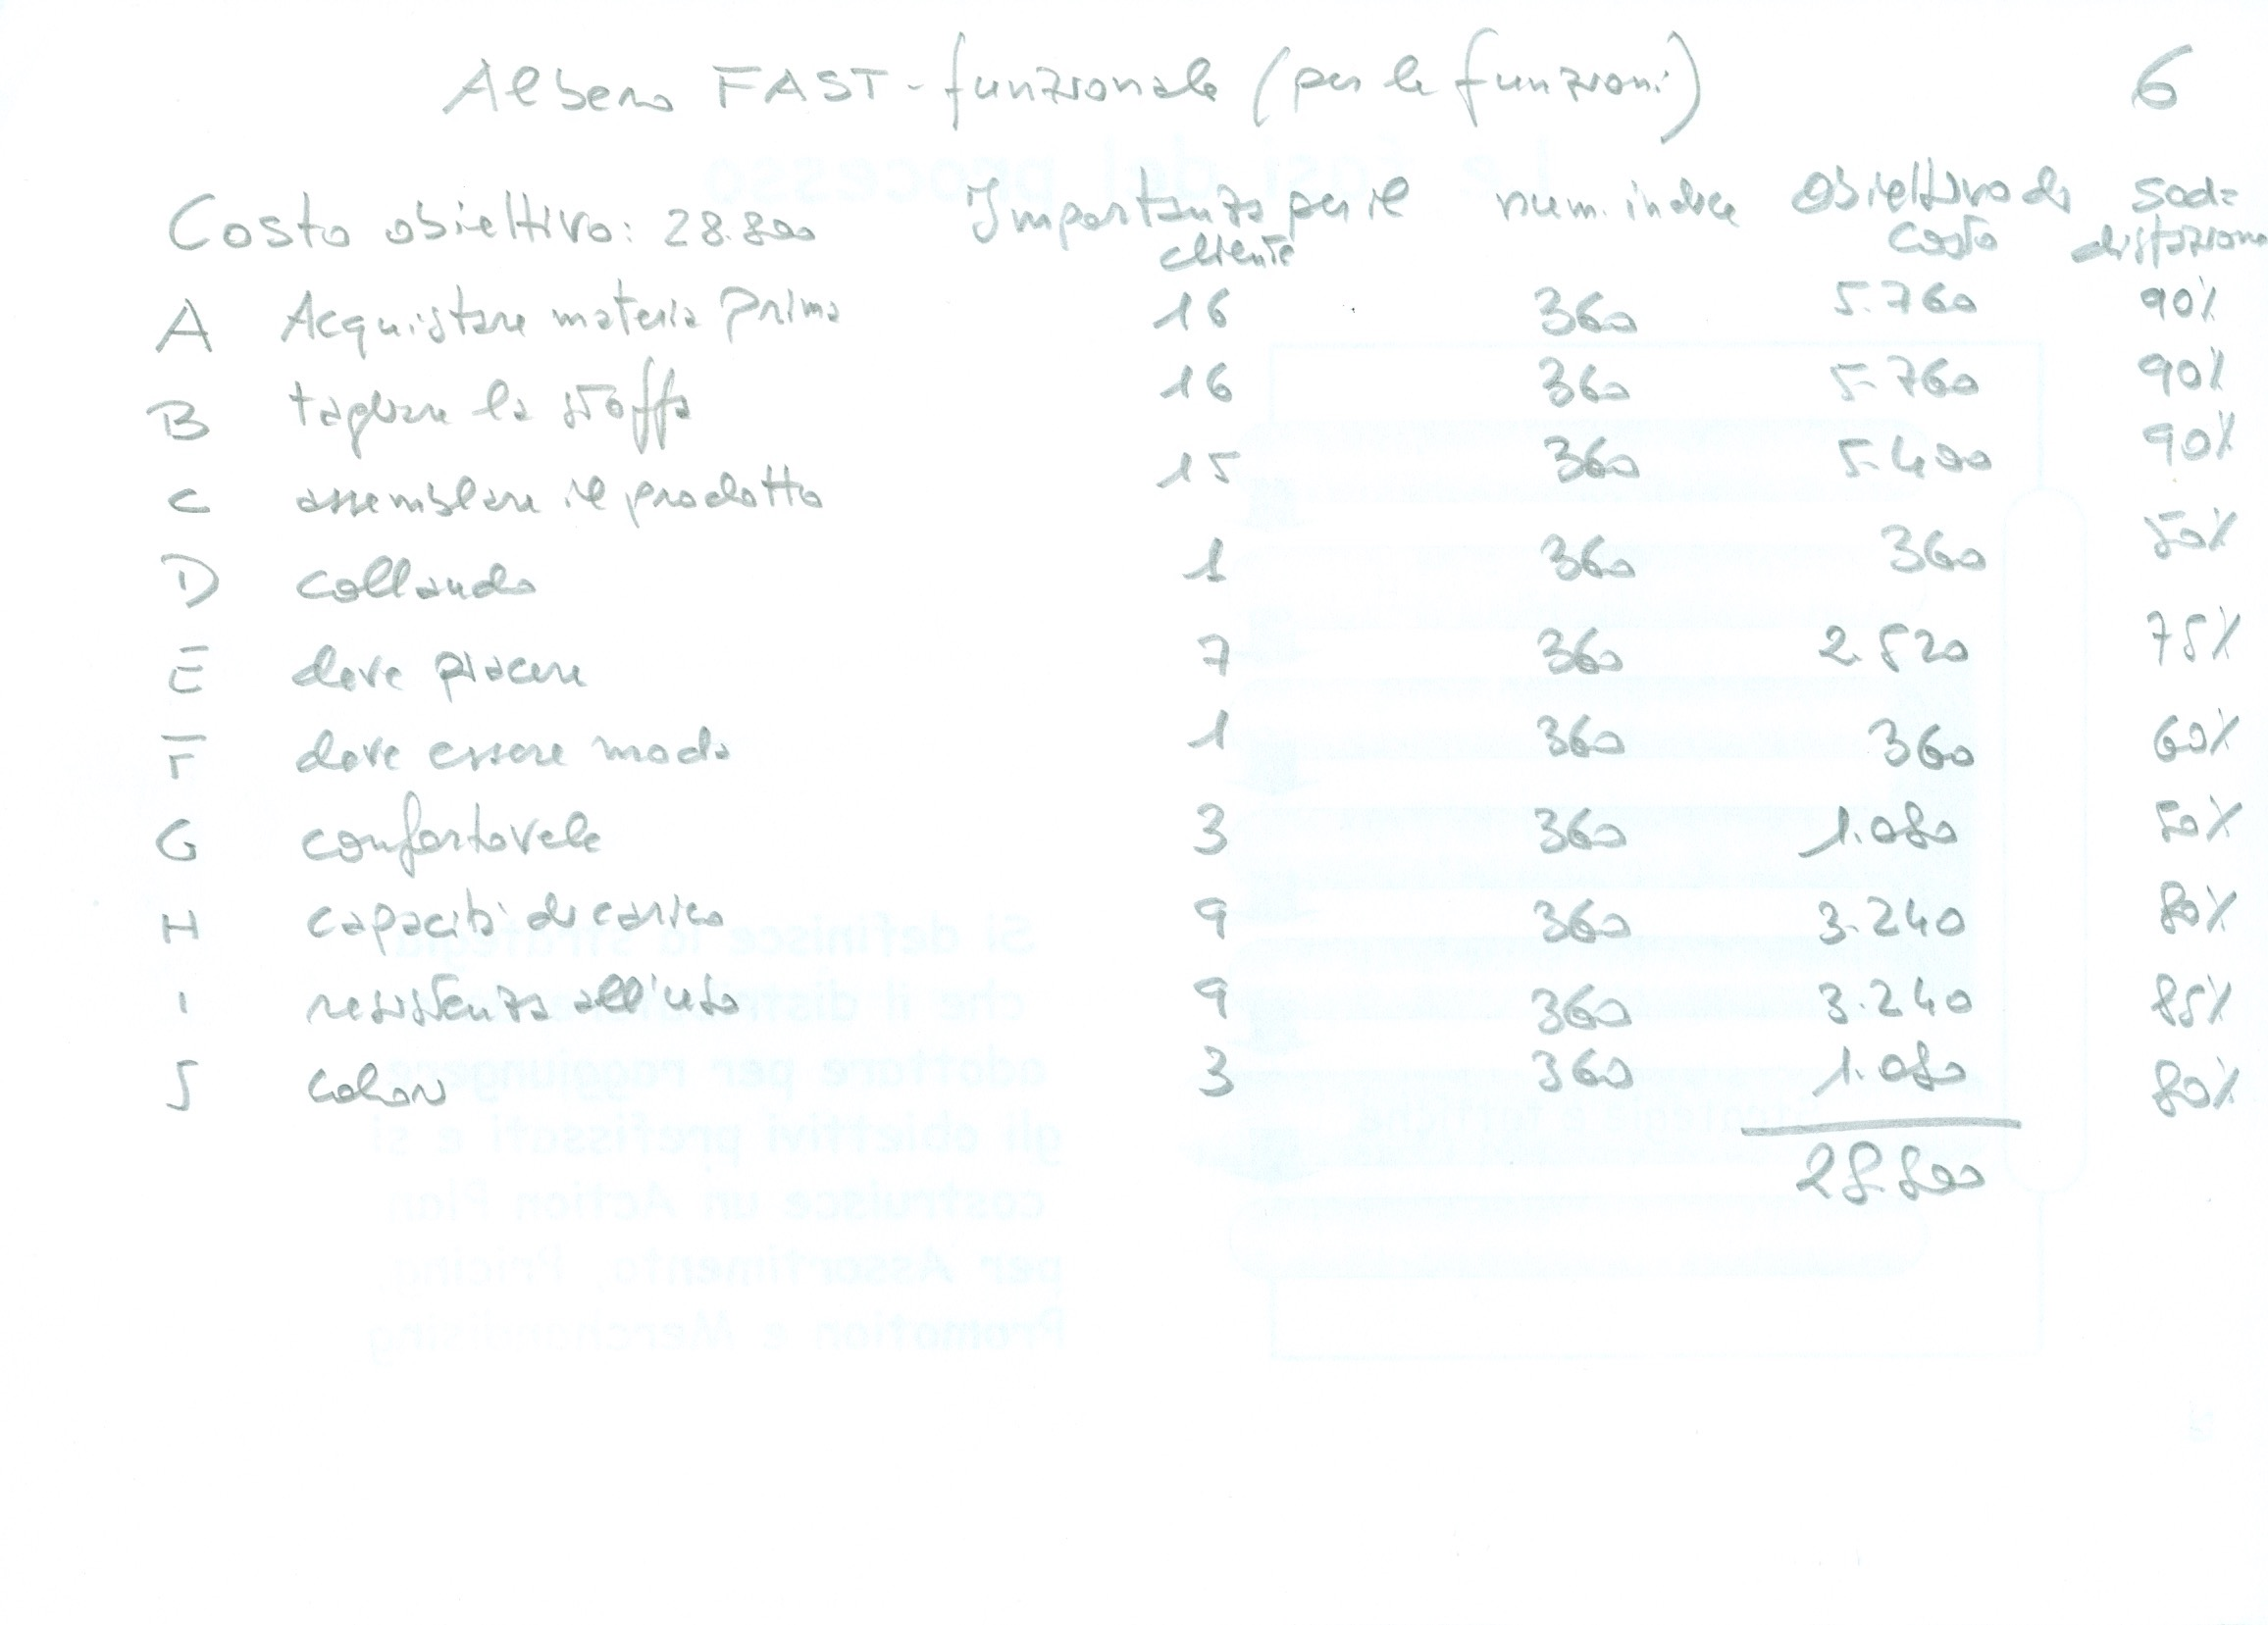 Albero FAST-funzionale (per le funzioni) 6
Costo obiettivo: 28.800 Importanza per il cliente num. indice obiettivo di costo soddisfazione
A Acquistare materia prima 16 360 5.760 90%
B tagliare la stoffa 16 360 5.760 90%
C assemblare il prodotto 15 360 5.400 90%
D collaudo 1 360 360 50%
E deve piacere 7 360 2.520 75%
F deve essere moda 1 360 360 60%
G confortevole 3 360 1.080 50%
H capacità di carico 9 360 3.240 80%
I resistenza all'uso 9 360 3.240 85%
J colori 3 360 1.080 80%
28.800
Le fasi del processo
Si definisce la strategia
che il distributore deve
adottare per raggiungere
gli obiettivi prefissati e si
costruisce un Action Plan
per Assortimento, Pricing,
Promotion e Merchandising
Strategie e tattiche